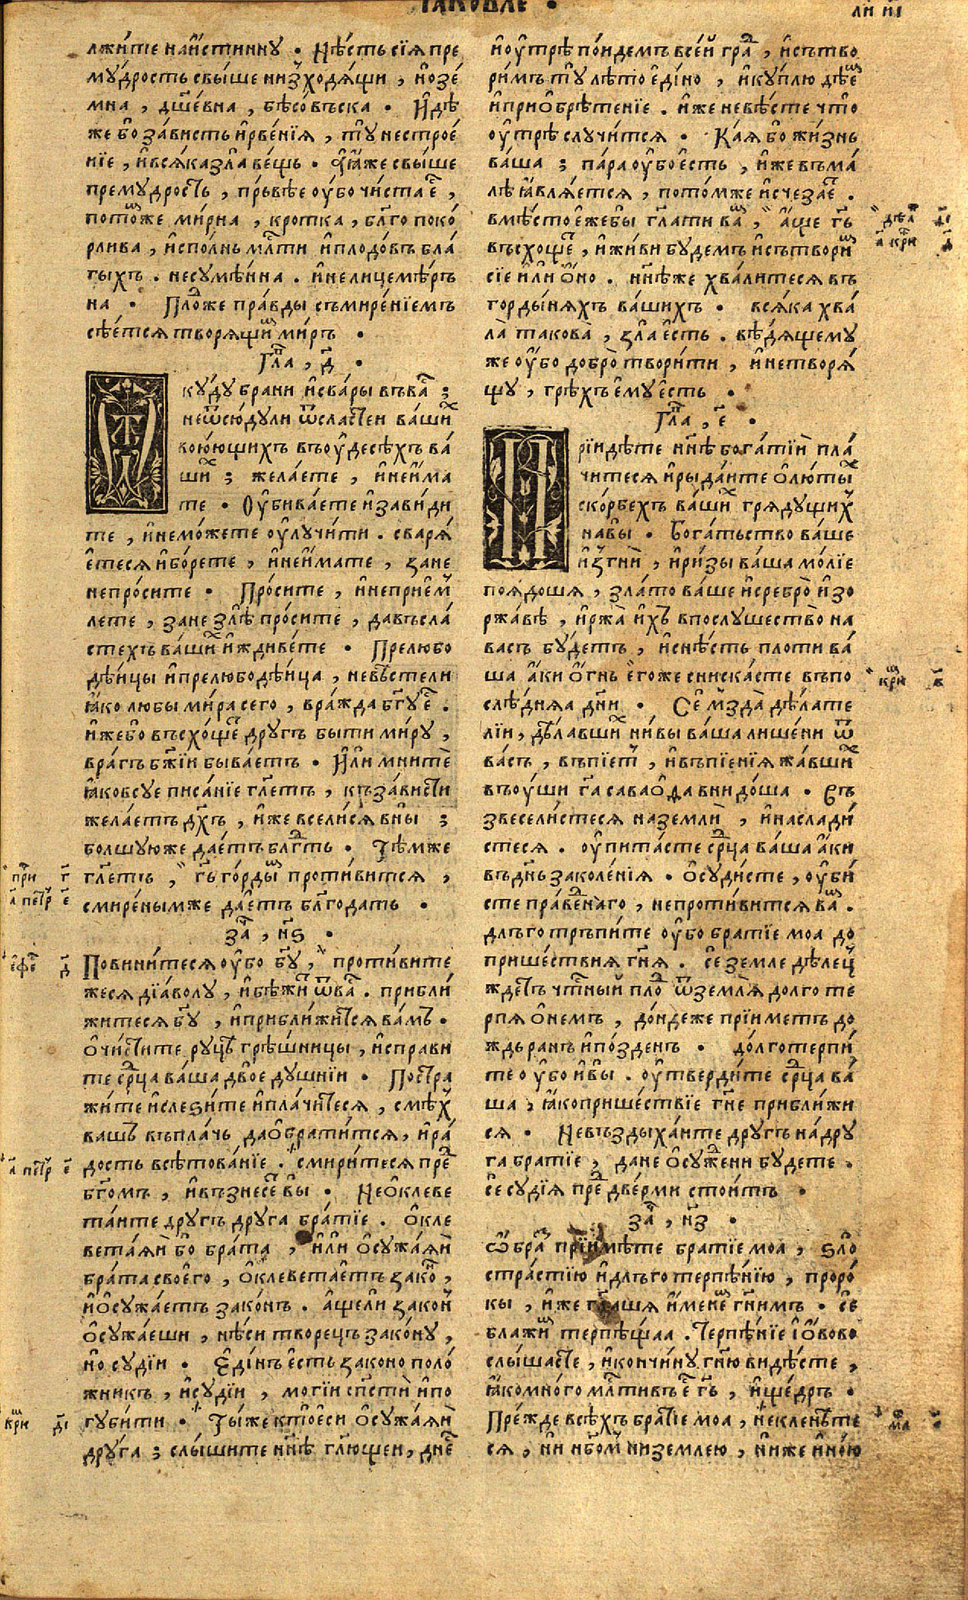 ІАКОВЛЕ ·
лжи́те на и҆́стинну · Нѣ́сть сїѧ̀ пре
мꙋ́дрость свы́ше низ̾ходѧ́щи , но̀ зе́
мна , дш҃е́вна , бѣсо́въска · Идѣ́
же бо за́висть и҆ рве́нїѧ , тꙋ̀ нестрое́
нїе , и҆ всѧ́ка зла̀ ве́щь · а҆ ꙗ҆́же свы́ше
премꙋ́дрость , пръвѣ́е оу҆́бо чи́ста є҆́ ,
пото́мже ми́рна , кро́тка , бл҃го поко́
рлива , и҆спо́лнь мл҃ти и҆ плодо́въ бла
ги́хъ . несꙋмѣ́нна . и҆ нелицемѣ́ръ
на · Пло́дже пра́вды съмире́нїемъ
сѣ́етсѧ творѧ́щим ми́ръ ·
Гла , д҃ ·
Ѿкꙋ́дꙋ бра́ни и҆ сва́ры въ ва́ ;
не ѿсю́дꙋ ли ѿ сласте́и ва́ши
вою́ющихъ въ оу҆десѣ́хъ ва́
ши ; жела́ете , и҆ не и҆́ма
те · Оу҆бива́ете и҆ зави́ди
те , и҆ не мо́жете оу҆лꙋчи́ти . сварѧ́
етесѧ и҆ бо́рете , и҆ не и҆́мате , занѐ
непро́сите · Про́сите , и҆ неприе́м
лете , занѐ злѣ̀ про́сите , да въ сла́
стехъ ва́ши и҆ждиве́те · Прелюбо
дѣ́ицы и҆ прелюбодѣ́ица , невѣ́сте ли
ꙗ҆́ко любы̀ ми́ра сего̀ , вражда̀ бг҃ꙋ є҆́ .
и҆́же бо въсхо́ще дрꙋ́гъ бы́ти ми́рꙋ ,
вра́гъ бж҃їи быва́етъ · И҆лѝ мнитѐ
ꙗ҆́ко въсꙋ́е писа́нїе гл҃етъ , къ за́висти
жела́етъ дх҃ъ , и҆́же всели́сѧ в ны̀ ;
бо́лшꙋюже дае́тъ бл҃гть · Тѣ́мже
гл҃етъ , гь҃ го́рдым проти́витсѧ ,
смире́нымже дае́тъ бл҃года́ть ·
за҃ , н҃ѕ ·
Повини́тесѧ оу҆́бо бг҃ꙋ , проти́вите
жесѧ дїа́волꙋ , и҆ бѣжи́ ѿ ва́ . прибли́
житесѧ бг҃ꙋ , и҆ прибли́житсѧ ва́мъ .
о҆чи́стите рꙋ́цѣ грѣ́шницы , и҆спра́ви
те ср҃ца ва́ша двоедꙋ́шнїи · Постра
жи́те и҆ слези́те и҆ пла́читесѧ , смѣ́х
ва́шъ въ пла́чь да о҆брати́тсѧ , и҆ ра́
дость в сѣ́тованїе . смири́тесѧ пре́
бг҃омъ , и҆ възнесе́ вы̀ · Не о҆клеве
та́ите дрꙋ́гъ дрꙋ́га бра́тїе . о҆кле
вета́ѧи бо бра́та , и҆лѝ о҆сꙋжа́ѧи
бра́та своего̀ , о҆клевета́етъ зако́ ,
и҆ о҆сꙋжа́етъ зако́нъ . а҆́ще ли зако́н
о҆сꙋжа́еши , нѣ́си творе́цъ зако́нꙋ ,
но̀ сꙋдїѝ · Єди́нъ є҆́сть законополо́
жникъ , и҆ сꙋдїѝ , моги́и спⷭ҇ти и҆ по
гꙋби́ти · Ты́же кто̀ є҆сѝ о҆сꙋжа́ѧи
дрꙋ́га ; слы́шите нн҃ѣ гл҃ющеи , дне́
и҆ оу҆́трѣ по́идемъ в се́й гра́ , и҆ сътво
ри́мъ тꙋ̀ лѣ́то є҆ди́но , и҆ кꙋ́плю дѣ́ем
и҆ прио҆брѣ́тенїе . и҆́же невѣ́сте что̀
оу҆́трѣ слꙋчи́тсѧ · Ка́ѧ бо жи́знь
ва́ша ; па́ра оу҆́бо є҆́сть , и҆́же въма́
лѣ ꙗ҆влѧ́етсѧ , пото́мже и҆счеза́е .
вмѣ́сто є҆́же бы гл҃ати ва́м , а҆́ще гь҃
въсхо́ще , и҆ жи́ви бꙋ́демъ и҆ сътвори́м
сїѐ и҆лѝ о҆́но . нн҃ѣже хвали́тесѧ въ
горды́нѧхъ ва́шихъ · всѧ́ка хва
ла̀ такова̀ , зла̀ є҆́сть . вѣ́дѧщемꙋ
же оу҆́бо добро̀ твори́ти , и҆ нетворѧ́
щꙋ , грѣ́хъ є҆мꙋ̀ є҆́сть ·
Гла , е҃ ·
Прїидѣ́те нн҃ѣ бога́тїи пла́
читесѧ и҆ рыда́ите о҆ лю́ты
ско́рбехъ ва́ши грѧдꙋ́щих
на вы̀ · Бога́тьство ва́ше
и҆згнѝ , и҆ ри́зы ва́ша мо́лїе
поѧдо́шѧ , зла́то ва́ше и҆ сребро̀ и҆зо
ржа́вѣ , и҆ ржа̀ и҆́хъ в послꙋ́шество на
ва́съ бꙋ́детъ , и҆ снѣ́сть пло́ти ва́
ша а҆́ки о҆́гнь є҆го́же сниска́сте въ по
слѣ́днѧа дн҃и · Се̑ мзда̀ дѣ́лате
лїи , дѣ́лавши ни́вы ва́ша лише́ни ѿ
ва́съ , въпїе́т , и҆ въпїе́нїѧ жа́вши
въ оу҆́ши га҃ савао́фа внидо́ша · Въ
звесели́стесѧ на землѝ , и҆ наслади́
стесѧ . оу҆пита́сте ср҃ца ва́ша а҆́ки
въ дн҃ь заколе́нїѧ . О҆сꙋди́сте , оу҆би́
сте пра́венаго , непроти́витсѧ ва́м .
длъготръпи́те оу҆́бо бра́тїе моа̀ до
прише́ствїѧ гн҃ѧ . се̑ земледѣ́лец
жде́тъ чтⷭ҇ный пло́д ѿ землѧ̀ долготе
рпѧ̀ о҆ не́мъ , до́ндеже прїи́метъ до
ждь ра́нъ и҆ по́зденъ · долготерпи́
те оу҆́бо и҆ вы̀ . оу҆тверди́те ср҃ца ва́
ша , ꙗ҆́ко прише́ствїе гн҃е прибли́жи
сѧ · Невъздыха́ите дрꙋ́гъ на дрꙋ
га бра́тїе , да не о҆сꙋже́ни бꙋ́дете .
се̑ сꙋдїѧ̀ пре́д две́рми стои́тъ ·
за҃ , н҃з ·
Ѡ҆́бра́ прїимѣ́те бра́тїе моа̀ , ѕло
стра́стїю и҆ длъготерпѣ́нїю , проро́
кы , и҆́же гл҃ашѧ и҆́мене гн҃имъ · се̑
блажи́м терпѧ́щаа . Терпѣ́нїе і҆о҆́вово
слы́шасте , и҆ кончи́нꙋ гн҃ю ви́дѣсте ,
ꙗ҆́ко мно́го млⷭ҇тивъ є҆́ гь҃ , и҆ ще́дръ ·
Пре́жде всѣ́хъ бра́тїе моа̀ , не клени́те
сѧ , ни нб҃ом ни земле́ю , ни́же и҆но́ю